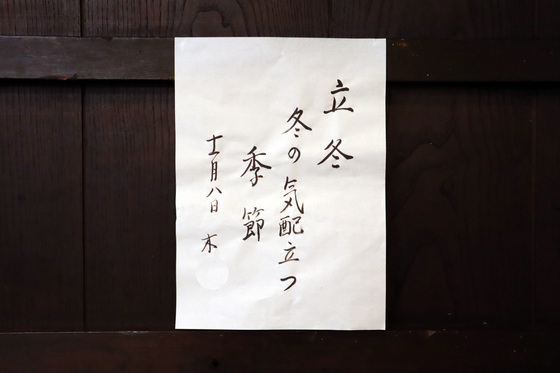 立冬
冬の気配立つ
季節
十一月八日 木